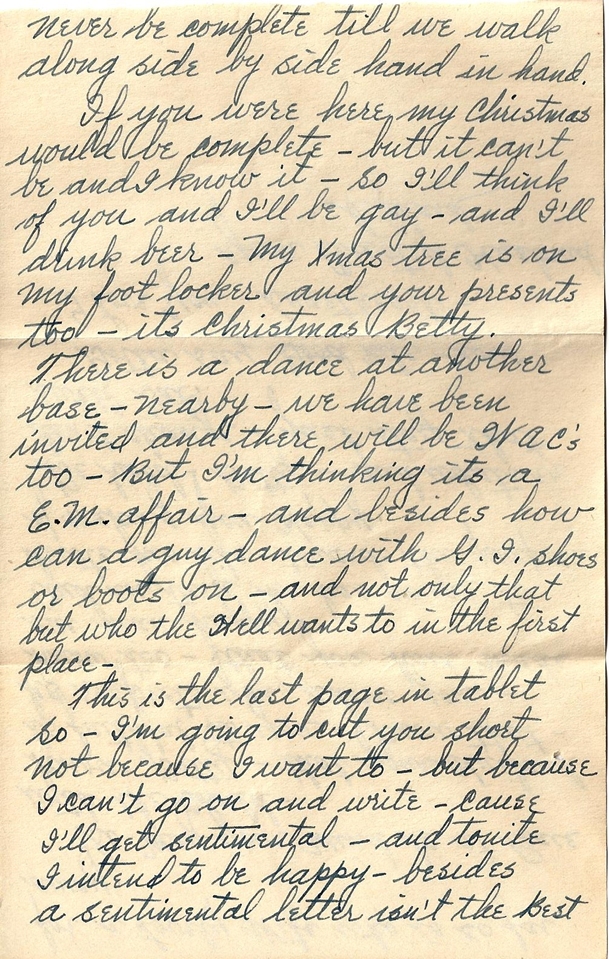 never be complete till we walk
along side by side hand in hand.
If you were here my Christmas
would be complete - but it can't
be and I know it - so I'll think
of you and I'll be gay - and I'll
drink beer - My Xmas tree is on
my foot locker and your presents
too - its Christmas Betty.
There is a dance at another
base - nearby - we have been
invited and there will be WAC's
too - But I'm thinking its a
E.M. affair - and besides how
can a guy dance with G.I. shoes
or boots on - and not only that
but who the Hell wants to in the first
place -
This is the last page in tablet
so - I'm going to cut you short
not because I want to - but because
I can't go on and write - cause
I'll get sentimental - and tonite
I intend to be happy - besides
a sentimental letter isn't the Best